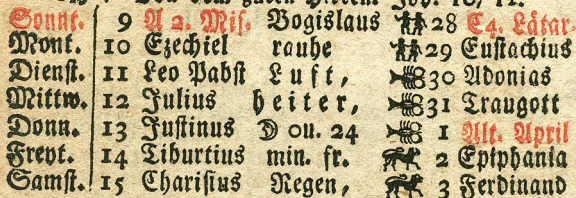 Sonnt. 9 A 2. Mis. Bogislaus 28 C4. Lätar
Mont. 10 Ezechiel rauhe 29 Eustachius
Dienst. 11 Leo Pabst Luft, 30 Adonias
Mittw. 12 Julius heiter, 31 Traugott
Donn. 13 Justinus ☽ 0u. 24 1 Alt. April
Freyt. 14 Tiburtius min. fr. 2 Epiphania
Samst. 15 Charisius Regen, 3 Ferdinand